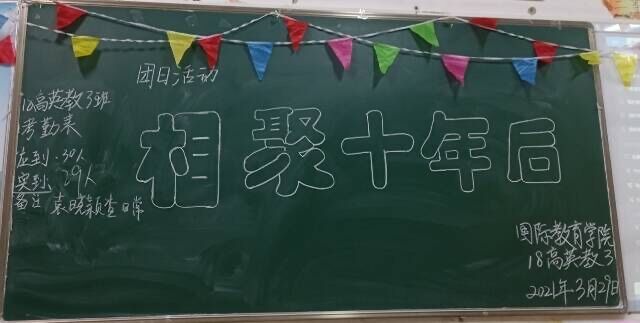 团日活动
18高英教3班
考勤表
应到:30人
实到:29人
备注 袁晓颖查日常
相聚十年后
国际教育学院
18高英教3
2021年3月29日